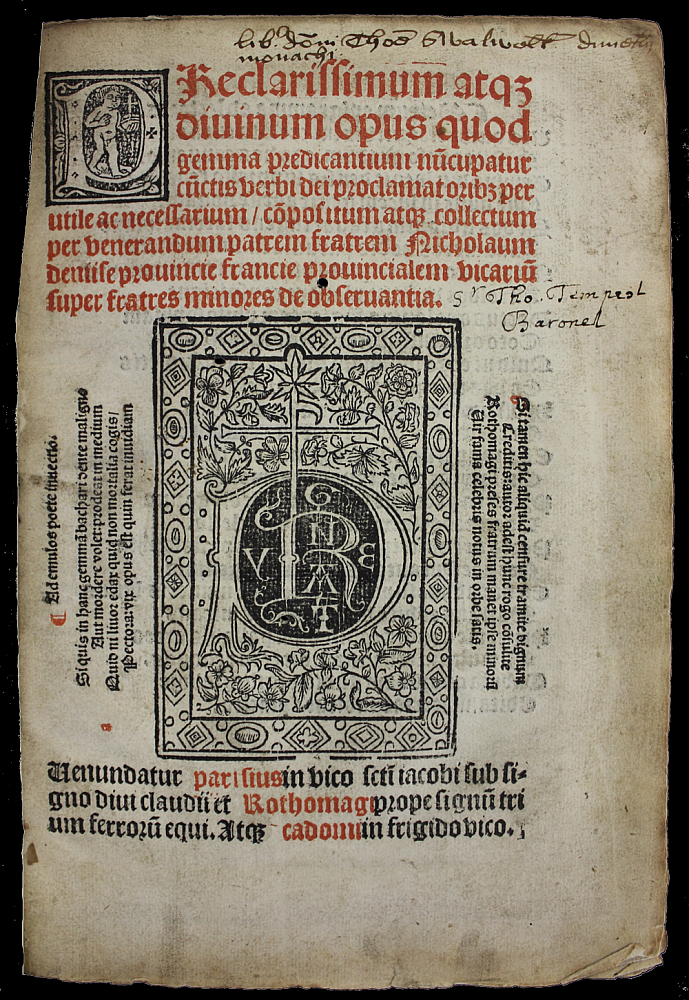 lib. dom̄ Tho͞s Swalwell dunelm̄
monachi
PReclarissimum atqꝫ
diuinum opus quod
gemma predicantium nūcupatur
cūctis verbi dei proclamatoribꝫ per
utile ac necessarium / cōpositum atqꝫ collectum
per venerandum patrem fratrem Nicholaum
deniise prouincie francie prouincialem vicariū
super fratres minores de obseruantia.
Sr Tho. Tempest
Baronet
Ad emulos poete inuectio.
Si quis in hanc gemmā bachari dente maligno
Aut mordere volet: prodeat in medium
Quid ni liuor edax quid non mortalia cogis /
Pectora: vix opus est quin ferat inuidiam
Si tamen hic aliquid censure tramite dignum
Creditis: autor adest hunc rogo cōsulite
Rothomagi preses fratrum manet ipse minorū
Vir fama celebris notus in orbe satis.
V R E
Venundatur parisius in vico scti iacobi sub si-
gno diui claudii et Rothomagi prope signū tri
um ferrorū equi. Atqꝫ cadomi in frigido vico.